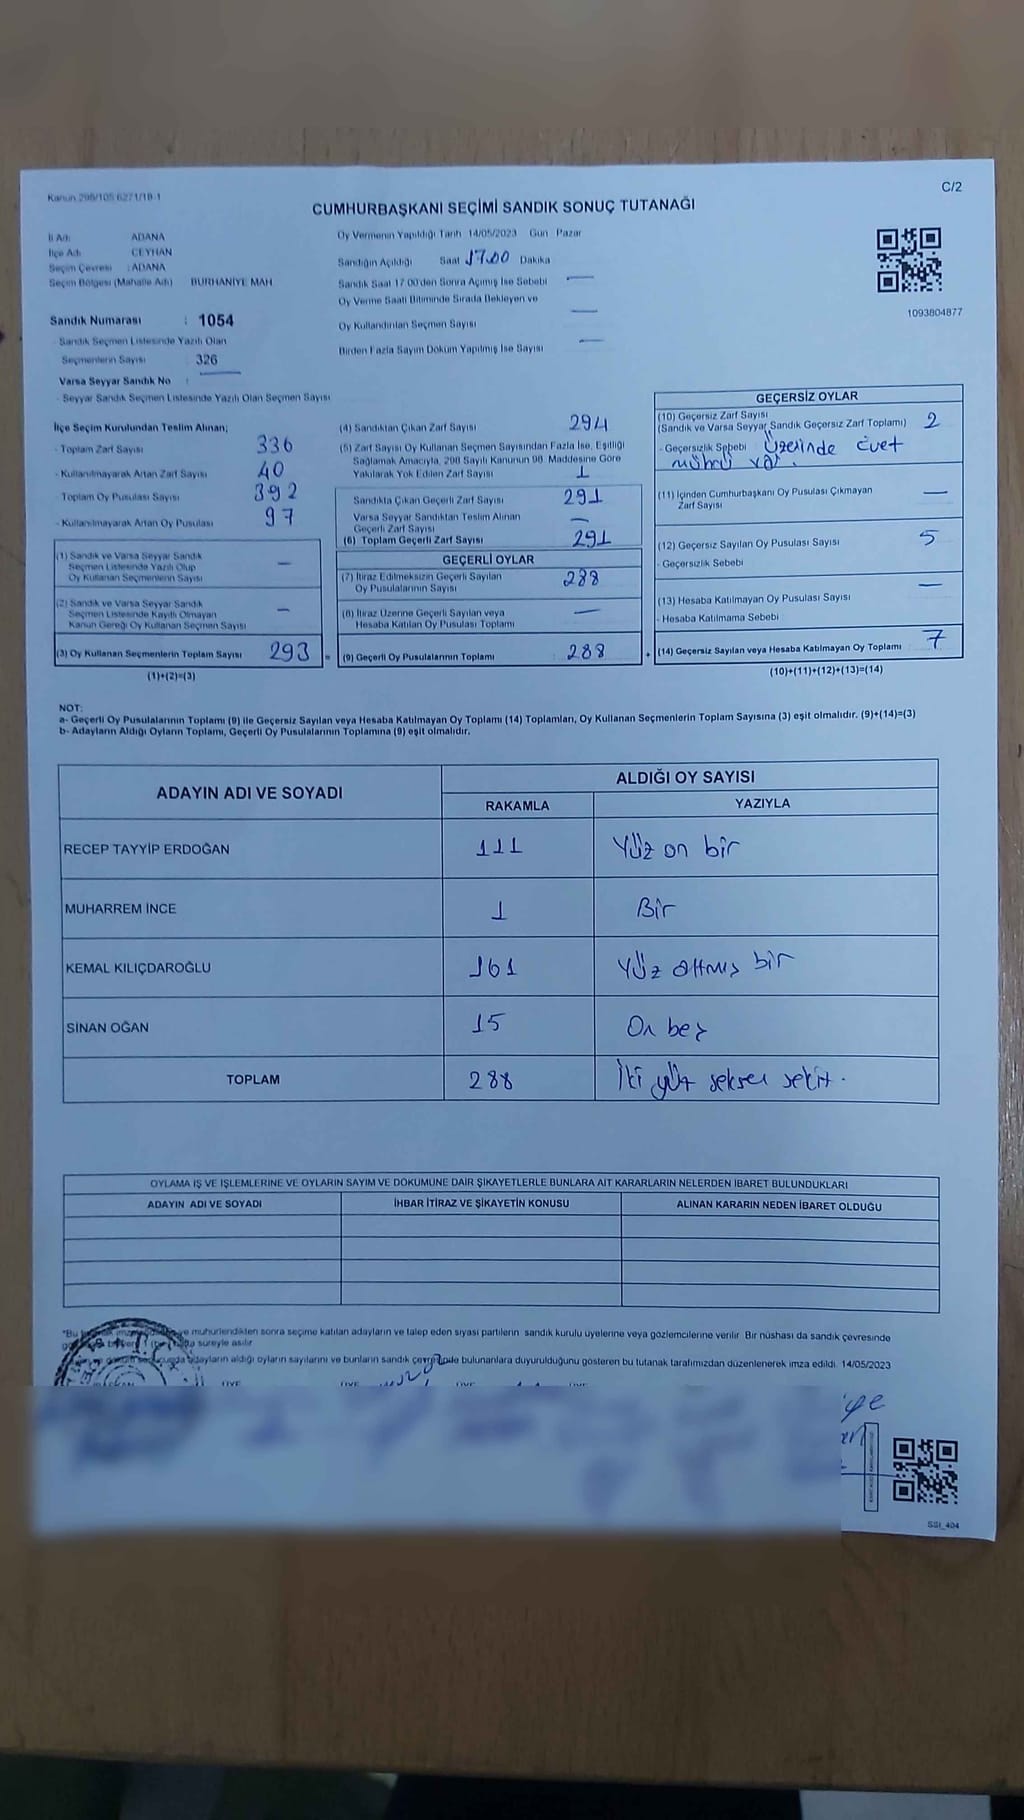 Kanun 298/105 6271/18-1
C/2
CUMHURBAŞKANI SEÇİMİ SANDIK SONUÇ TUTANAĞI
İl Adı: ADANA
İlçe Adı: CEYHAN
Seçim Çevresi : ADANA
Seçim Bölgesi (Mahalle Adı) BURHANİYE MAH
Sandık Numarası : 1054
- Sandık Seçmen Listesinde Yazılı Olan
Seçmenlerin Sayısı 326
Varsa Seyyar Sandık No :
- Seyyar Sandık Seçmen Listesinde Yazılı Olan Seçmen Sayısı
Oy Vermenin Yapıldığı Tarih 14/05/2023 Gün Pazar
Sandığın Açıldığı Saat 17.00 Dakika
Sandık Saat 17.00'den Sonra Açılmış İse Sebebi —
Oy Verme Saati Bitiminde Sırada Bekleyen ve
Oy Kullandırılan Seçmen Sayısı —
Birden Fazla Sayım Döküm Yapılmış İse Sayısı —
1093804877
İlçe Seçim Kurulundan Teslim Alınan;
- Toplam Zarf Sayısı 336
- Kullanılmayarak Artan Zarf Sayısı 40
- Toplam Oy Pusulası Sayısı 392
- Kullanılmayarak Artan Oy Pusulası 97
(1) Sandık ve Varsa Seyyar Sandık
Seçmen Listesinde Yazılı Olup
Oy Kullanan Seçmenlerin Sayısı —
(2) Sandık ve Varsa Seyyar Sandık
Seçmen Listesinde Kayıtlı Olmayan
Kanun Gereği Oy Kullanan Seçmen Sayısı —
(3) Oy Kullanan Seçmenlerin Toplam Sayısı 293
(1)+(2)=(3)
(4) Sandıktan Çıkan Zarf Sayısı 294
(5) Zarf Sayısı Oy Kullanan Seçmen Sayısından Fazla İse, Eşitliği
Sağlamak Amacıyla, 298 Sayılı Kanunun 98. Maddesine Göre
Yakılarak Yok Edilen Zarf Sayısı 1
Sandıkta Çıkan Geçerli Zarf Sayısı 291
Varsa Seyyar Sandıktan Teslim Alınan
Geçerli Zarf Sayısı —
(6) Toplam Geçerli Zarf Sayısı 291
GEÇERLİ OYLAR
(7) İtiraz Edilmeksizin Geçerli Sayılan
Oy Pusulalarının Sayısı 288
(8) İtiraz Üzerine Geçerli Sayılan veya
Hesaba Katılan Oy Pusulası Toplamı —
= (9) Geçerli Oy Pusulalarının Toplamı : 288
GEÇERSİZ OYLAR
(10) Geçersiz Zarf Sayısı
(Sandık ve Varsa Seyyar Sandık Geçersiz Zarf Toplamı) 2
- Geçersizlik Sebebi Üzerinde Evet
mührü var.
(11) İçinden Cumhurbaşkanı Oy Pusulası Çıkmayan
Zarf Sayısı —
(12) Geçersiz Sayılan Oy Pusulası Sayısı 5
- Geçersizlik Sebebi
(13) Hesaba Katılmayan Oy Pusulası Sayısı —
- Hesaba Katılmama Sebebi
+ (14) Geçersiz Sayılan veya Hesaba Katılmayan Oy Toplamı 7
(10)+(11)+(12)+(13)=(14)
NOT:
a- Geçerli Oy Pusulalarının Toplamı (9) ile Geçersiz Sayılan veya Hesaba Katılmayan Oy Toplamı (14) Toplamları, Oy Kullanan Seçmenlerin Toplam Sayısına (3) eşit olmalıdır. (9)+(14)=(3)
b- Adayların Aldığı Oyların Toplamı, Geçerli Oy Pusulalarının Toplamına (9) eşit olmalıdır.
ADAYIN ADI VE SOYADI
ALDIĞI OY SAYISI
RAKAMLA YAZIYLA
RECEP TAYYİP ERDOĞAN 111 Yüz on bir
MUHARREM İNCE 1 Bir
KEMAL KILIÇDAROĞLU 161 Yüz altmış bir
SİNAN OĞAN 15 On beş
TOPLAM 288 İki yüz seksen sekiz.
OYLAMA İŞ VE İŞLEMLERİNE VE OYLARIN SAYIM VE DÖKÜMÜNE DAİR ŞİKAYETLERLE BUNLARA AİT KARARLARIN NELERDEN İBARET BULUNDUKLARI
ADAYIN ADI VE SOYADI İHBAR İTİRAZ VE ŞİKAYETİN KONUSU ALINAN KARARIN NEDEN İBARET OLDUĞU
*Bu mühürlendikten sonra seçime katılan adayların ve talep eden siyasi partilerin sandık kurulu üyelerine veya gözlemcilerine verilir. Bir nüshası da sandık çevresinde
süreyle asılır
adayların aldığı oyların sayılarını ve bunların sandık çevresinde bulunanlara duyurulduğunu gösteren bu tutanak tarafımızdan düzenlenerek imza edildi. 14/05/2023
SSI_404